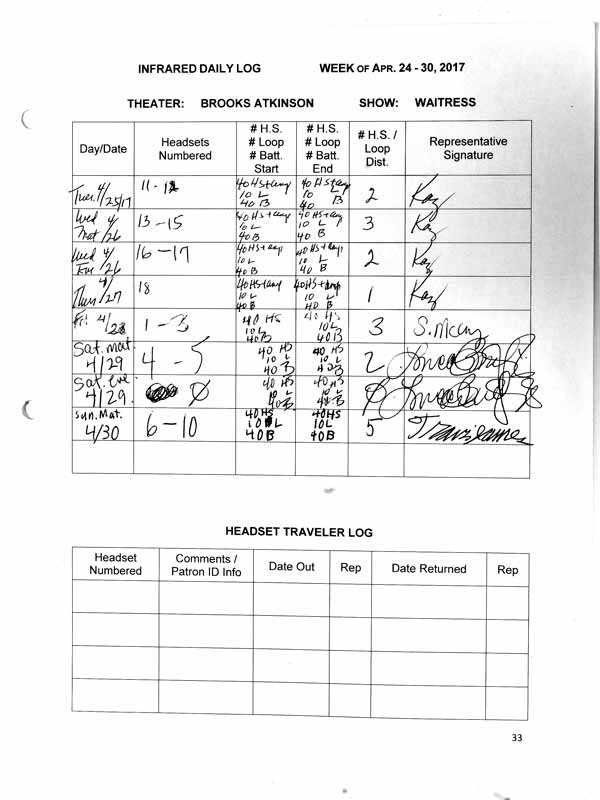 INFRARED DAILY LOG WEEK OF APR. 24 - 30, 2017
THEATER: BROOKS ATKINSON SHOW: WAITRESS
Day/Date Headsets Numbered # H.S. # Loop # Batt. Start # H.S. # Loop # Batt. End # H.S. / Loop Dist. Representative Signature
Tues. 4/25/17 11-12 40 HS+amp 10 L 40 B 40 HS+amp 10 L 40 B 2 Kay
Wed Mat 4/26 13-15 40 HS+amp 10 L 40 B 40 HS+amp 10 L 40 B 3 Kay
Wed Eve 4/26 16-17 40 HS+amp 10 L 40 B 40 HS+amp 10 L 40 B 2 Kay
Thur 4/27 18 40 HS+amp 10 L 40 B 40 HS+amp 10 L 40 B 1 Kay
Fri 4/28 1-3 40 HS 10 L 40 B 40 HS 10 L 40 B 3
Sat. mat. 4/29 4-5 40 HS 10 L 40 B 40 HS 10 L 40 B 2
Sat. Eve 4/29 0 40 HS 10 L 40 B 40 HS 10 L 40 B 0
Sun. Mat. 4/30 6-10 40 HS 10 L 40 B 40 HS 10 L 40 B 5
HEADSET TRAVELER LOG
Headset Numbered Comments / Patron ID Info Date Out Rep Date Returned Rep
33